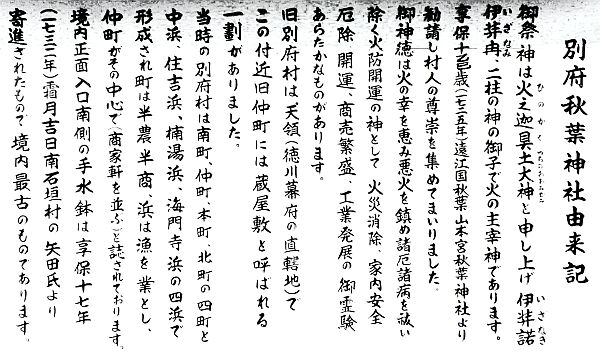 別府秋葉神社由来記
御祭神は火之迦具土大神と申し上げ 伊弉諾
伊弉冉、二柱の神の御子で火の主宰神であります。
享保十巳歳(一七二五年)遠江国秋葉山本宮秋葉神社より
勧請し村人の尊崇を集めてまいりました。
御神徳は火の幸を恵み悪火を鎮め諸厄諸病を祓い
除く火防開運の神として 火災消除、家内安全
厄除開運、商売繁盛、工業発展の御霊験
あらたかなものがあります。
旧別府村は天領(徳川幕府の直轄地)で
この付近旧仲町には蔵屋敷と呼ばれる
一劃がありました。
当時の別府村は南町、仲町、本町、北町の四町と
中浜、住吉浜、楠湯浜、海門寺浜の四浜で
形成され町は半農半商、浜は漁を業とし、
仲町がその中心で(商家軒を並ぶ)と誌されております。
境内正面入口南側の手水鉢は享保十七年
(一七三二年)霜月吉日南石垣村の矢田氏より
寄進されたもので 境内最古のものであります。